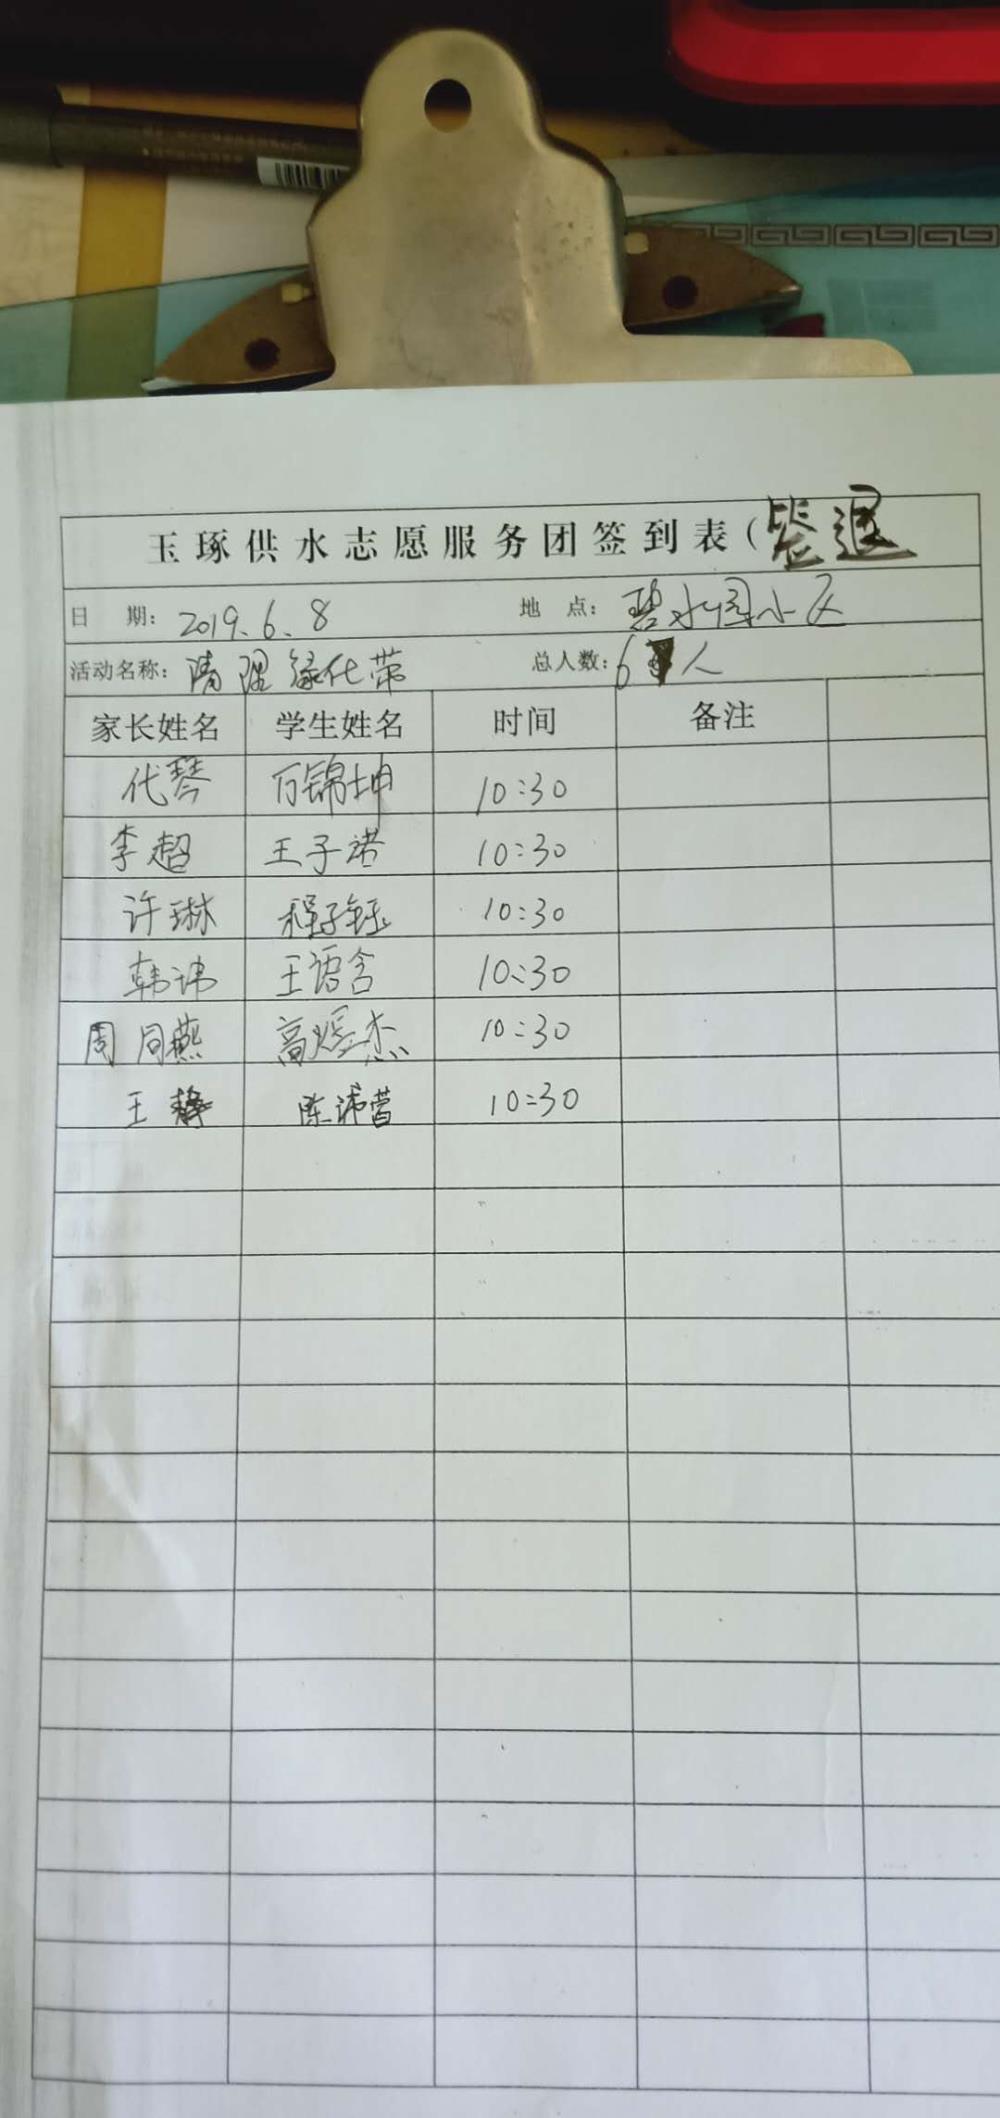 玉琢供水志愿服务团签到表(签退
日 期: 2019.6.8 地 点: 碧水园小区
活动名称: 清理绿化带 总人数: 6人
家长姓名 学生姓名 时间 备注
代琴 万锦坤 10:30
李超 王子诺 10:30
许琳 程子钰 10:30
韩沛 王语含 10:30
周同燕 高煜杰 10:30
王静 陈沛萱 10:30